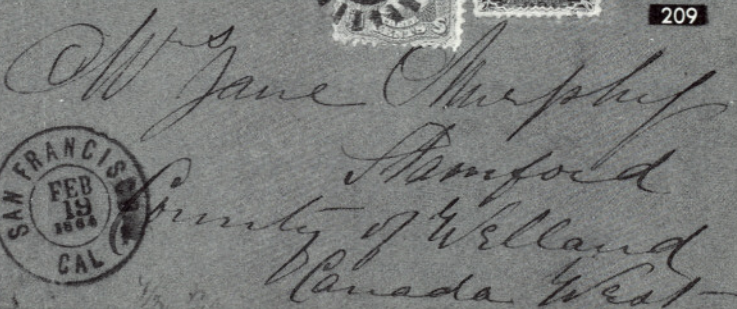 209
CENTS
Mrs Jane Murphy
Stamford
County of Welland
Canada West
SAN FRANCISCO
FEB
19
1864
CAL